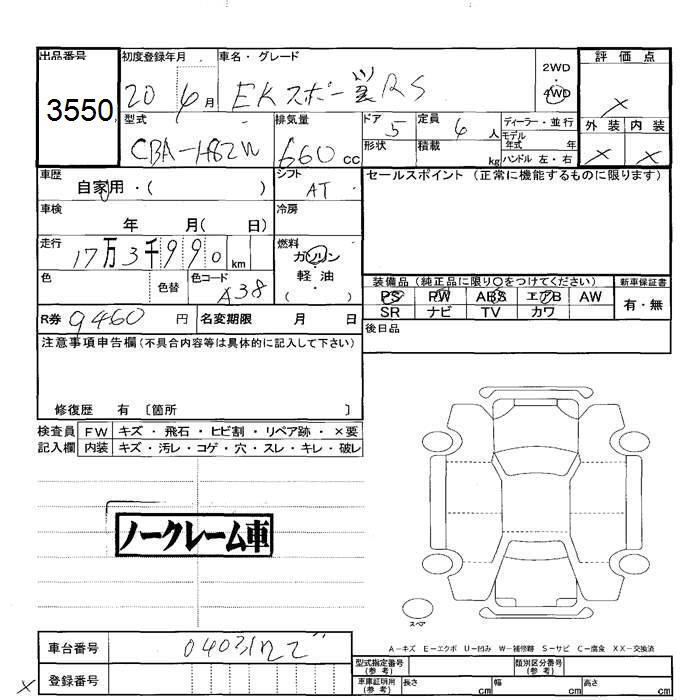 出品番号 初度登録年月 車名・グレード 評価点
3550 20 年 6 月 EKスポーツ RS 2WD 4WD ×
型式 排気量 ドア 定員 ディーラー・並行 外装 内装
CBA-H82W 660 cc 5 人 モデル年式 年 × ×
形状 積載 kg ハンドル 左・右
車歴 シフト セールスポイント (正常に機能するものに限ります)
自家用・( ) AT
車検 冷房
年 月( 日)
走行 燃料
17万3千990 km ガソリン・軽油 ( )
色 色替 色コード A38 装備品 (純正品に限り○をつけてください) 新車保証書
PS PW ABS エアB AW 有・無
SR ナビ TV カワ
R券 9460 円 名変期限 月 日 後日品
注意事項申告欄 (不具合内容等は具体的に記入して下さい)
修復歴 有 〔箇所 〕
検査員 FW キズ・飛石・ヒビ割・リペア跡・×要
記入欄 内装 キズ・汚レ・コゲ・穴・スレ・キレ・破レ
ノークレーム車
スペア
A-キズ E-エクボ U-凹み W-補修跡 S-サビ C-腐食 XX-交換済
車台番号
型式指定番号 (参考) 類別区分番号 (参考)
登録番号 車庫証明用 (参考) 長さ cm 幅 cm 高さ cm
×